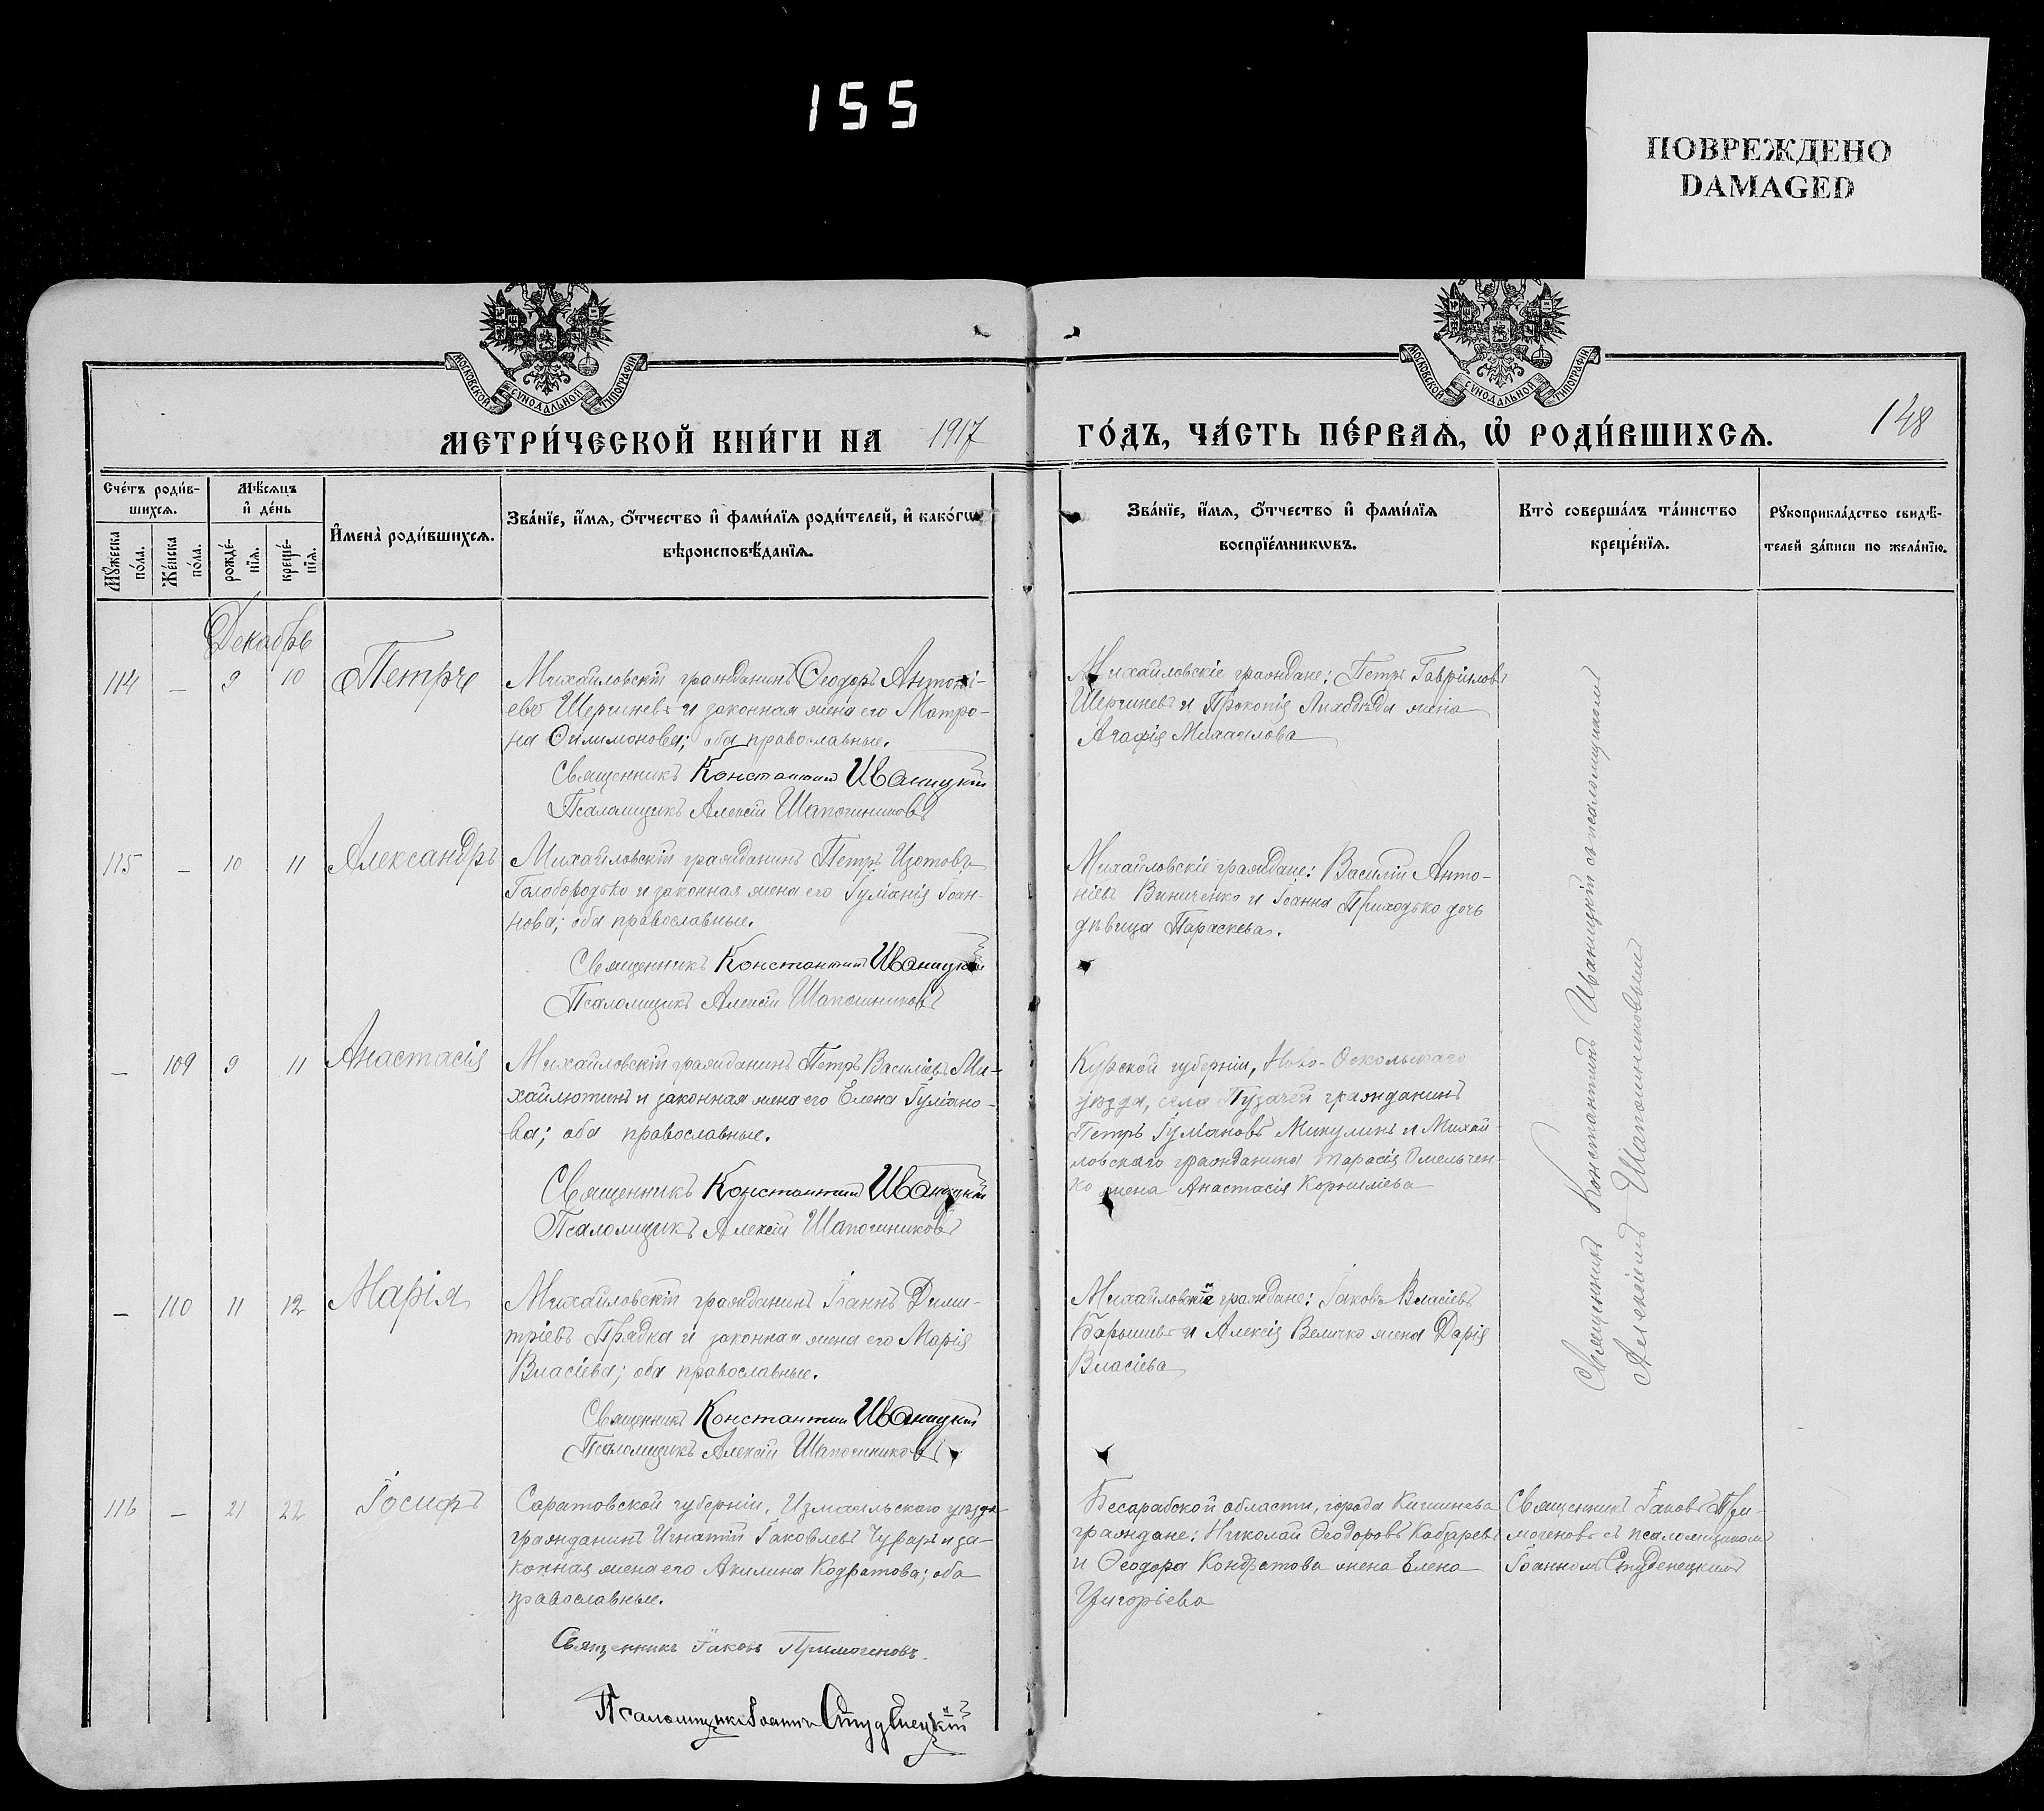 155
ПОВРЕЖДЕНО
DAMAGED
МОСКОВСКОЙ СѴНОДАЛЬНОЙ ТИПОГРАФІИ
МОСКОВСКОЙ СѴНОДАЛЬНОЙ ТИПОГРАФІИ
МЕТРИ́ЧЕСКОЙ КНИ́ГИ НА 1917 ГО́ДЪ, ЧА́СТЬ ПЕ́РВАѦ, Ѡ҆ РОДИ́ВШИХСѦ.
148
Сче́тъ роди́в-
шихсѧ.
Мꙋ́жеска по́ла.
Же́нска по́ла.
Мѣ́сяцъ
и҆ де́нь
рожде́-
нїѧ.
креще́-
нїѧ.
И҆мена̀ роди́вшихсѧ.
Зва́нїе, и҆́мѧ, ѻ҆́тчество и҆ фами́лїѧ роди́телей, и҆ како́гѡ
вѣроисповѣ́данїѧ.
Зва́нїе, и҆́мѧ, ѻ҆́тчество и҆ фами́лїѧ
воспрїе́мникѡвъ.
Кто̀ соверша́лъ та́инство
креще́нїѧ.
Рꙋкоприкла́дство свидѣ́-
телей за́писи по жела́нїю.
Декабрь
114 – 9 10 Петръ
Михайловскій гражданинъ Ѳеодоръ Антоні-
евъ Шергиневъ и законная жена его Матро-
на Филимонова; оба православные.
Священникъ Константинъ Иваницкій
Псаломщикъ Алексій Шапошниковъ
Михайловскіе граждане: Петръ Гавріиловъ
Шергиневъ и Прокопія Лиходѣда жена
Агафія Михаилова
115 – 10 11 Александръ
Михайловскій гражданинъ Петръ Изотовъ
Голобородько и законная жена его Іуліанія Іоан-
нова; оба православные.
Священникъ Константинъ Иваницкій
Псаломщикъ Алексій Шапошниковъ
Михайловскіе граждане: Василій Анто-
ніевъ Виниченко и Іоанна Приходько дочь
дѣвица Параскева.
– 109 9 11 Анастасія
Михайловскій гражданинъ Петръ Василіевъ Ми-
хайлютинъ и законная жена его Елена Іуліано-
ва; оба православные.
Священникъ Константинъ Иваницкій
Псаломщикъ Алексій Шапошниковъ
Курской губерніи, Ново-Оскольскаго
уѣзда, села Пузачей гражданинъ
Петръ Іуліановъ Микулинъ и Михай-
ловскаго гражданина Тарасія Омельчен-
ко жена Анастасія Корнилiева
– 110 11 12 Марія
Михайловскій гражданинъ Іоаннъ Дими-
тріевъ Прядка и законная жена его Марія
Власіева; оба православные.
Священникъ Константинъ Иваницкій
Псаломщикъ Алексій Шапошниковъ
Михайловскіе граждане: Іаковъ Власіевъ
Барышевъ и Алексія Величко жена Дарія
Власіева
Священникъ Константинъ Иваницкій съ псаломщикомъ
Алексіемъ Шапошниковымъ
116 – 21 22 Іосифъ
Саратовской губерніи, Измаильского уѣзда
гражданинъ Игнатій Іаковлевъ Чуфаръ и за-
конная жена его Акилина Кодратова; оба
православные.
Священникъ Іаковъ Примогеновъ.
Псаломщикъ Іоаннъ Студенецкій
Бесарабской области, города Кишинева
граждане: Николай Ѳеодоровъ Кобзаревъ
и Ѳеодора Кондратова жена Елена
Григоріева
Священникъ Іаковъ При-
могеновъ съ псаломщикомъ
Іоанномъ Студенецкимъ